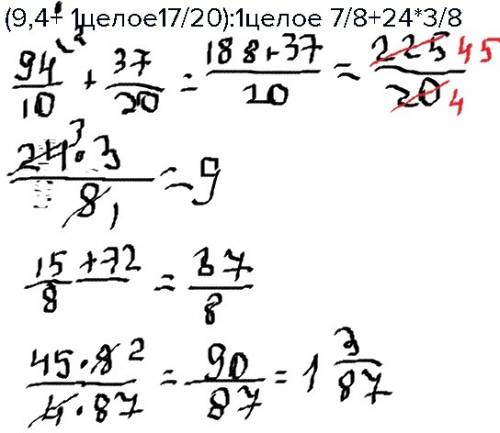 (9,4+ 1целое17/20):1целое 7/8+24*3/8
94/10 + 37/20 = 188+37/20 = 225/20 45/4
24 3 · 3/8 1 = 9
15+72/8 = 87/8
45·8 2/4·87 = 90/87 = 1 3/87